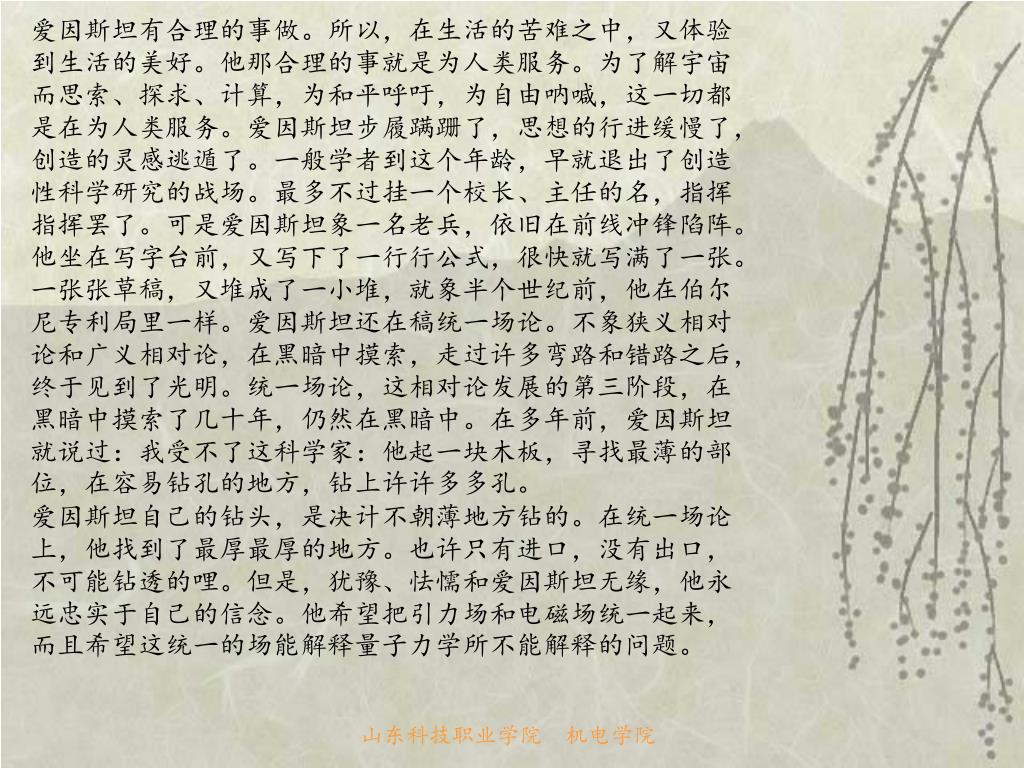 爱因斯坦有合理的事做。所以，在生活的苦难之中，又体验
到生活的美好。他那合理的事就是为人类服务。为了解宇宙
而思索、探求、计算，为和平呼吁，为自由呐喊，这一切都
是在为人类服务。爱因斯坦步履蹒跚了，思想的行进缓慢了，
创造的灵感逃遁了。一般学者到这个年龄，早就退出了创造
性科学研究的战场。最多不过挂一个校长、主任的名，指挥
指挥罢了。可是爱因斯坦象一名老兵，依旧在前线冲锋陷阵。
他坐在写字台前，又写下了一行行公式，很快就写满了一张。
一张张草稿，又堆成了一小堆，就象半个世纪前，他在伯尔
尼专利局里一样。爱因斯坦还在稿统一场论。不象狭义相对
论和广义相对论，在黑暗中摸索，走过许多弯路和错路之后，
终于见到了光明。统一场论，这相对论发展的第三阶段，在
黑暗中摸索了几十年，仍然在黑暗中。在多年前，爱因斯坦
就说过：我受不了这科学家：他起一块木板，寻找最薄的部
位，在容易钻孔的地方，钻上许许多多孔。
爱因斯坦自己的钻头，是决计不朝薄地方钻的。在统一场论
上，他找到了最厚最厚的地方。也许只有进口，没有出口，
不可能钻透的哩。但是，犹豫、怯懦和爱因斯坦无缘，他永
远忠实于自己的信念。他希望把引力场和电磁场统一起来，
而且希望这统一的场能解释量子力学所不能解释的问题。
山东科技职业学院 机电学院